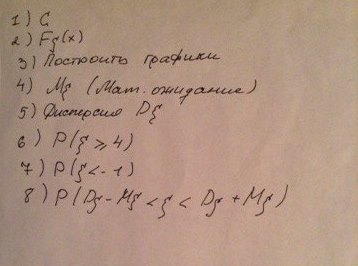 1) C
2) Fξ(x)
3) Построить графики
4) Mξ (Мат. ожидание)
5) Дисперсия Dξ
6) P(ξ ⩾ 4)
7) P(ξ < -1)
8) P(Dξ - Mξ < ξ < Dξ + Mξ)